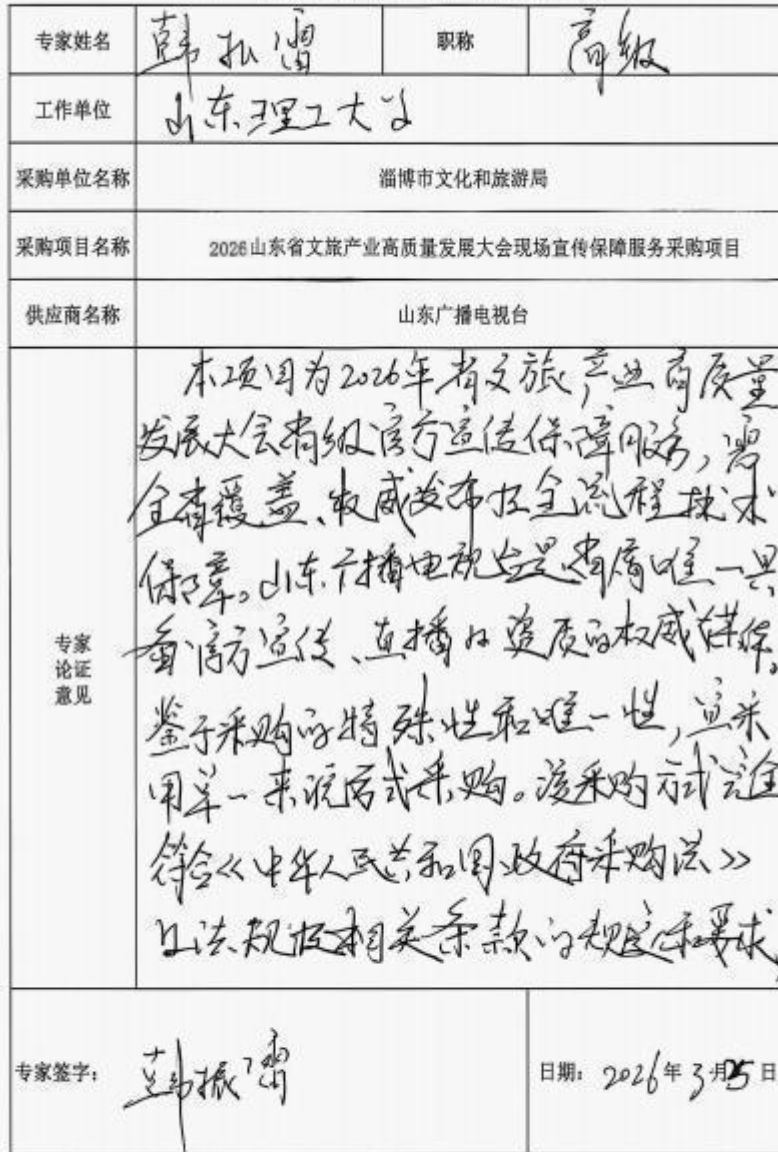 专家姓名 韩振霤 职称 高级
工作单位 山东理工大学
采购单位名称 淄博市文化和旅游局
采购项目名称 2026山东省文旅产业高质量发展大会现场宣传保障服务采购项目
供应商名称 山东广播电视台
专家论证意见
本项目为2026年省文旅产业高质量
发展大会省级官方宣传保障服务,需
全省覆盖、权威发布及全流程技术
保障。山东广播电视台是省属唯一具
备官方宣传、直播 资质的权威媒体。
鉴于采购的特殊性和唯一性,宜采
用单一来源方式采购。该采购方式完全
符合《中华人民共和国政府采购法》
法规及相关条款的规定和要求
专家签字: 韩振 日期: 2026年3月25日